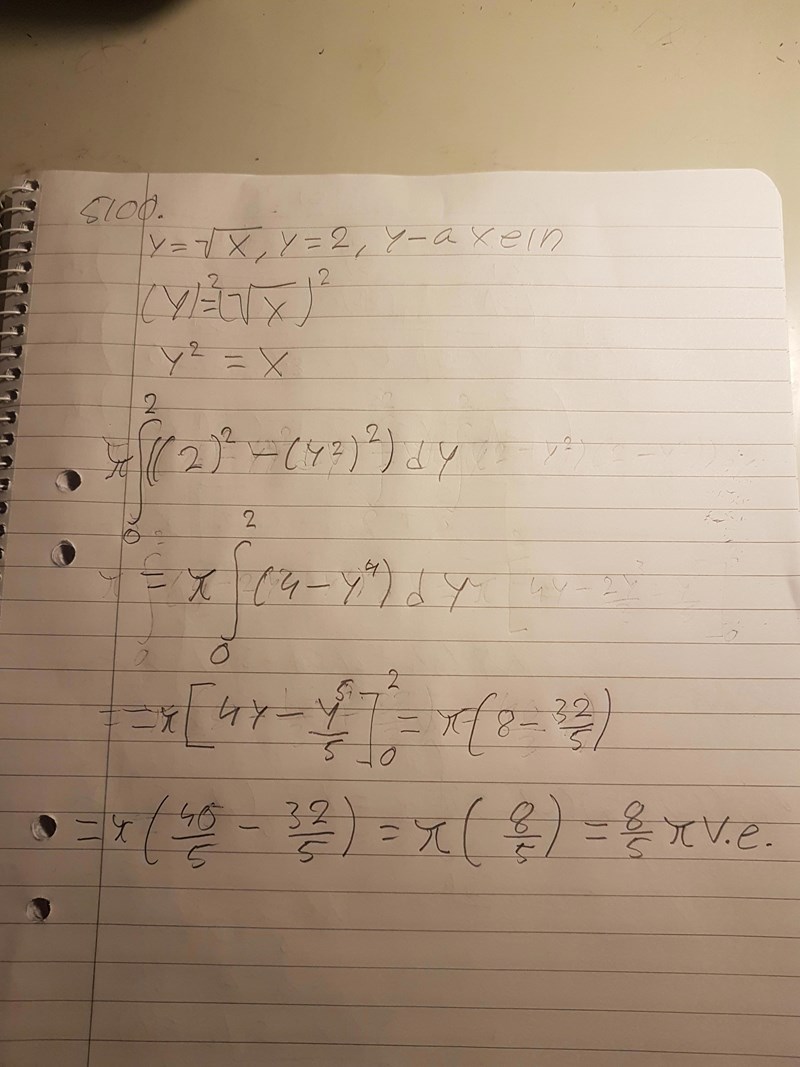 5100.
y=√x, y=2, y-axeln
(y)²=(√x)²
y² = x
π∫₀²((2)² - (y²)²) dy
= π∫₀²(4-y⁴) dy
==π[4y - y⁵/5]₀² = π(8 - 32/5)
=π(40/5 - 32/5) = π(8/5) = 8/5 π v.e.